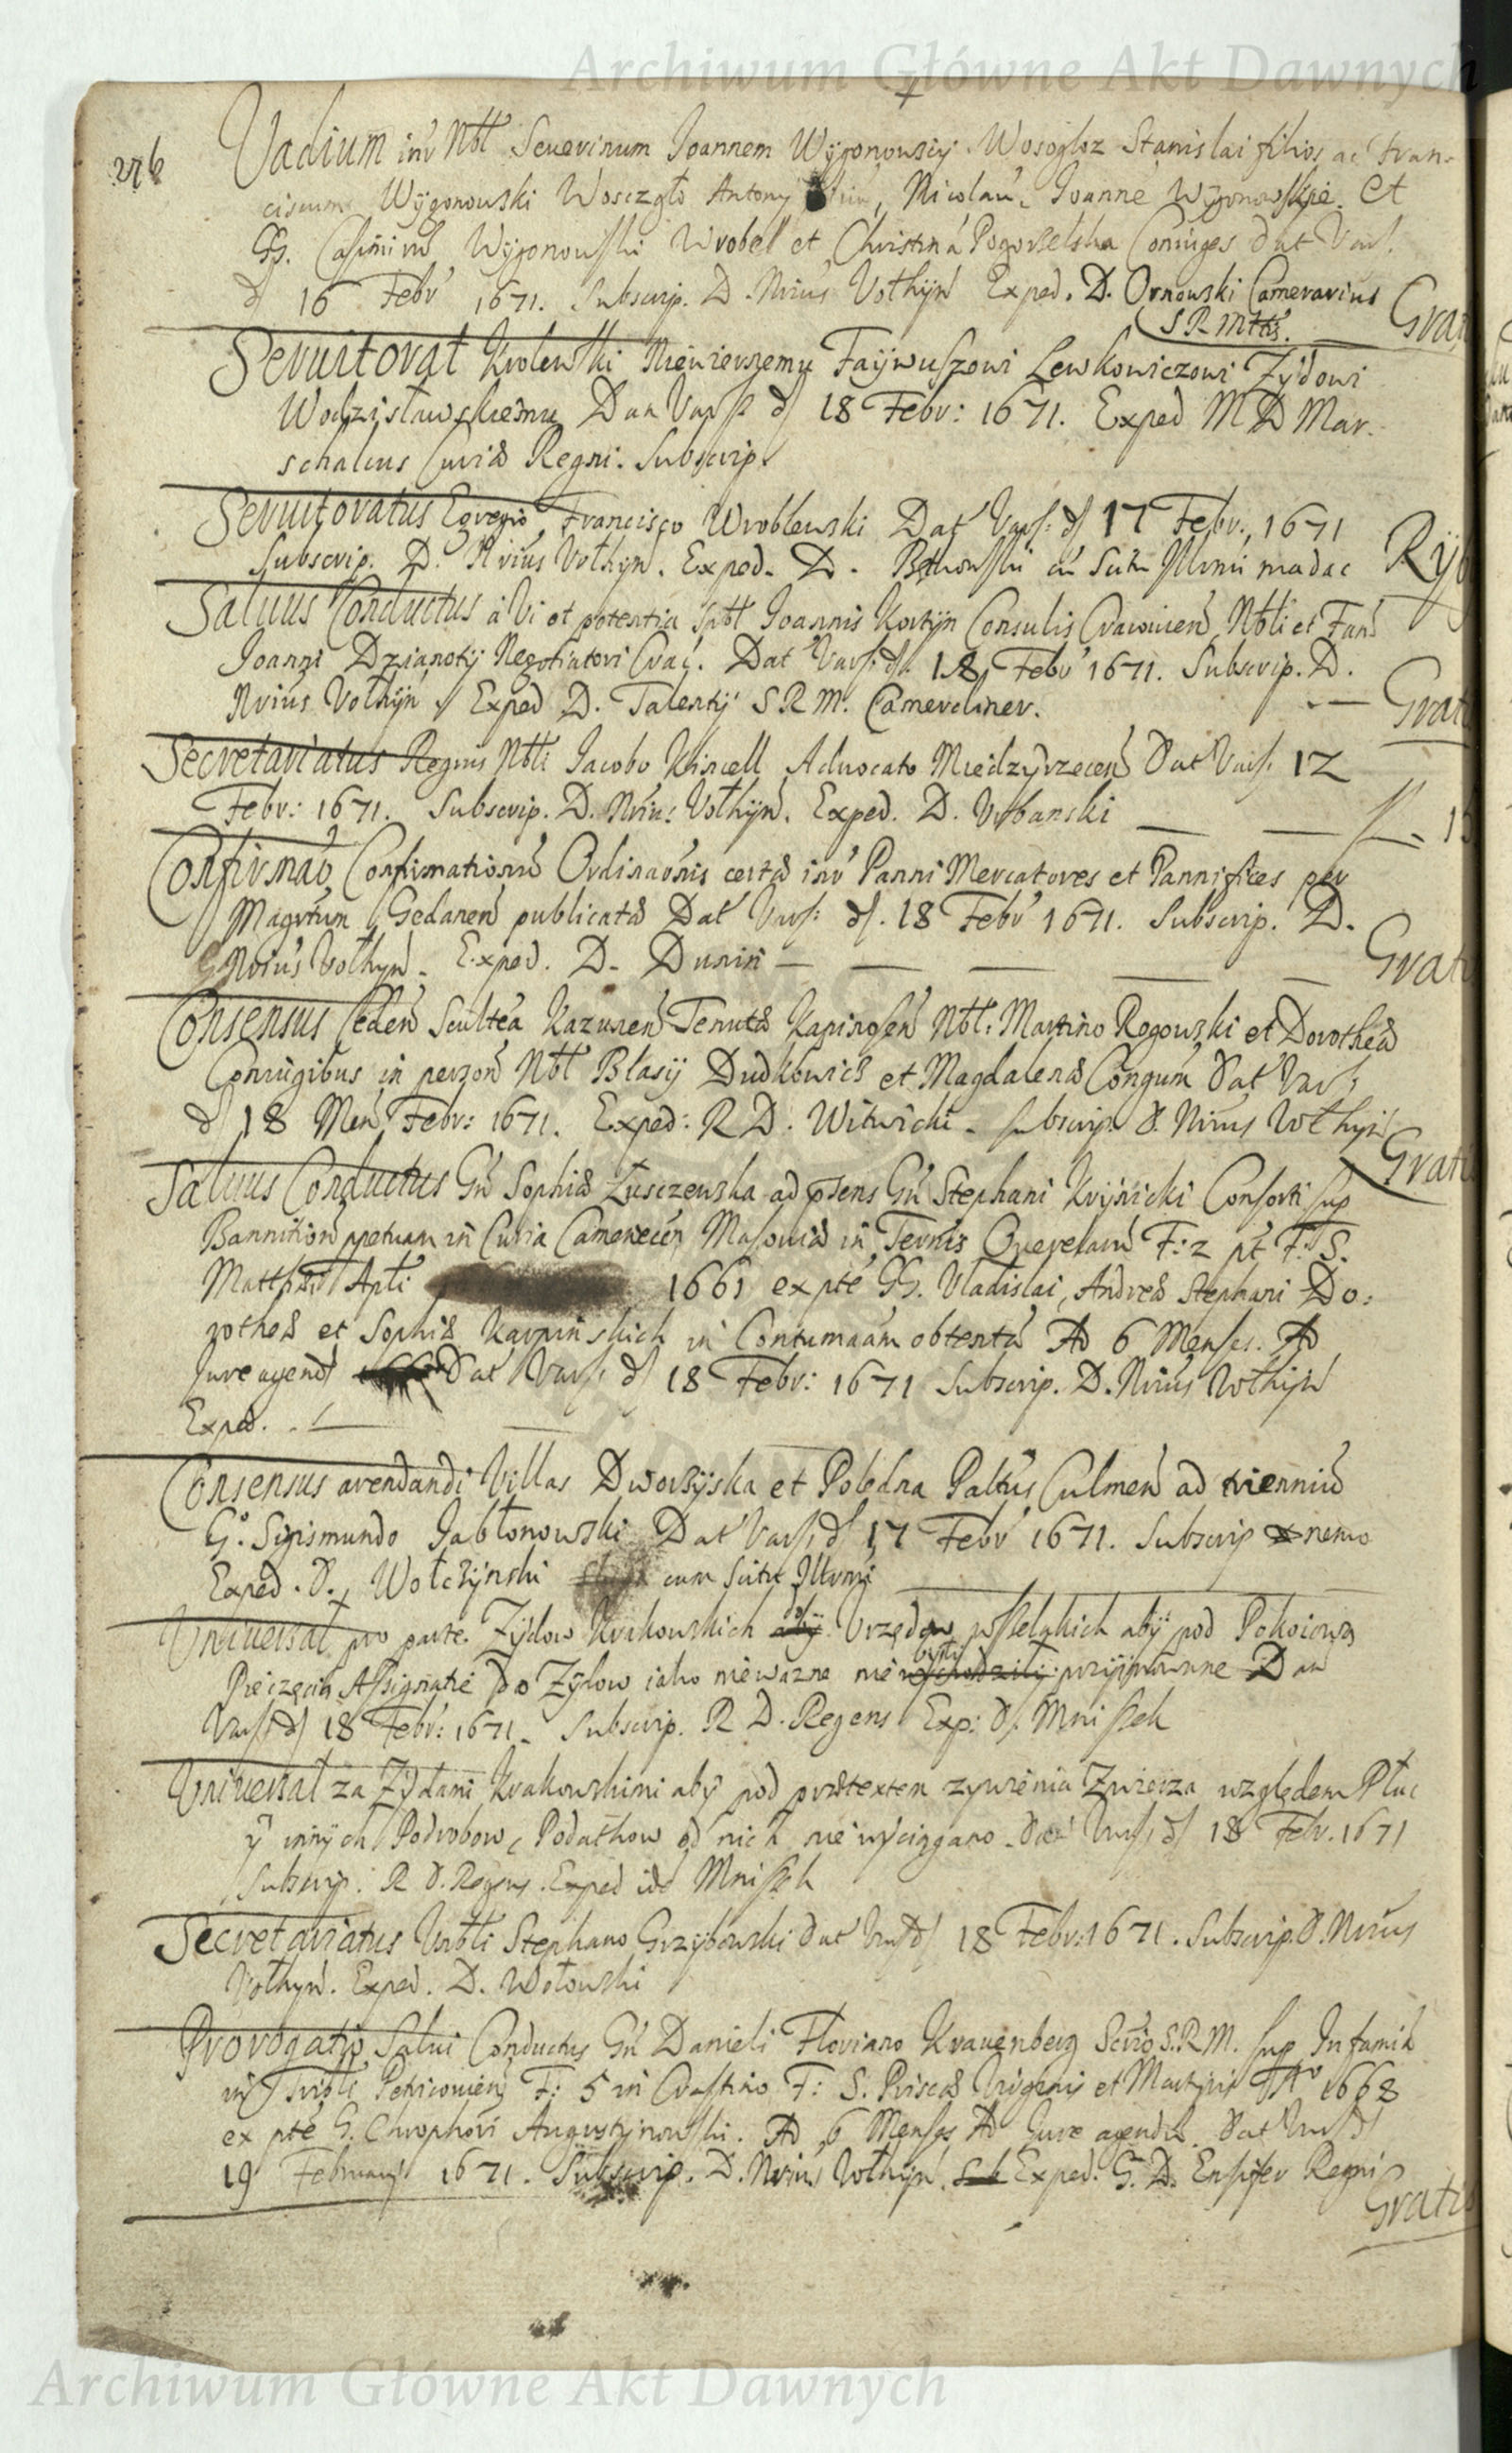 Archiwum Główne Akt Dawnych
276
Vadium int Nbl Severinum Joannem Wygonowscy Wosogloz Stanislai filios ac Fran-
ciscum Wygonowski Woszczgło Antony, Nicolau, Joanne Wygonowskie. Et
GG. Casimirũ Wygonowski Wrobel et Christina Pogorzelska Coniuges Dat Vars.
d 16 Febr 1671. Subscrip. D. Nrius Vołhyn Exped. D. Ornowski Camerarius
S R Mttis. Grat
Servitorat Krolewski Niewiernemu Faywuszowi Lewkowiczowi Zydowi
Wodzisławskiemu Dan Varss d 18 Febr: 1671. Exped M D Mar-
schalcus Curiæ Regni. Subscrip.
Servitoratus Egregio Francisco Wroblewski Dat Vars: d 17 Febr. 1671
Subscrip. D. Nrius Vołhyn. Exped. D. cũ Scitu Illrmi
Salvus Conductus a Vi et potentia Spbl Joannis Kortyn Consulis Cracovien Nbli et Fam
Joanni Dzianoty Negotiatori Crac. Dat Vars: d. 18 Febr 1671. Subscrip. D.
Nrius Vołhyn. Exped D. Talenty S R M. Camerdiner. Grat
Secretariatus Regius Nbli Jacobo Kincell Advocato Miedzyrzecen Dat Vars. 12
Febr: 1671. Subscrip. D. Nrius Vołhyn. Exped. D. Urbanski
Confirmao Confirmationis Ordinaonis certæ int Panni Mercatores et Pannifices per
Magrtum Gedanen publicatæ Dat Vars: d. 18 Febr 1671. Subscrip. D.
Nrius Vołhyn. Exped. D. Dunin Grat
Consensus Ceden Scultea Kazunen Tenutæ Kapinosen Nbl: Martino Rogowski et Dorotheæ
Coniugibus in person Nbl Błasij Dudkowicz et Magdalenæ Congum Dat Vars
d 18 Men Febr: 1671. Exped: R D. Witwicki. Subscrip. D. Nrius Vołhyn
Grat
Salvus Conductus Gñ Sophiæ Łusczewska ad psens Gñ Stephani Krynicki Consorti sup
Bannition ppetuam in Curia Masoviæ in F: 2 pt F: S.
Matthæi Apli 1661 ex pte GG. Vladislai, Andreæ Stephani Do-
rotheæ et Sophiæ Karpinskich in Contumaam obtenta Ad 6 Menses. Ad
Jure agend Dat Vars: d 18 Febr: 1671 Subscrip. D. Nrius Vołhyn
Exped.
Consensus arendandi Villas Dworzyska et Polędna Paltus Culmen ad trienniũ
G. Sigismundo Jabłonowski Dat Vars: d 17 Febr 1671. Subscrip nemo
Exped. D. Wołczynski cum scitu Illrmi
Universał pro parte Zydow Krakowskich do Urzędow wszelakich aby pod Pokoiową
Pieczęcią Assignatie do Zydow iako niewazne nie były przyimowane Dan
Vars: d 18 Febr: 1671. Subscrip. R D. Regens Exp: D. Mniszek
Universał za Zydami Krakowskimi aby pod prætextem zywienia Zwierza względem Płuc
y innych Podrobow, Podatkow od nich nie wyciągano. Dat Vars: d 18 Febr. 1671
Subscrip: R D. Regens. Exped ide Mniszek
Secretariatus Urbli Stephano Grzybowski Dat Vars d 18 Febr: 1671. Subscrip. D. Nrius
Vołhyn. Exped. D. Wołowski
Prorogatio Salvi Conductus Gñ Danieli Floriano Kravenberg Scrio S.R.M. sup Infamiæ
in Tribli Petricovien F: 5 in Crastino F: S. Priscæ Virginis et Martyris Ao 1668
ex pte G. Chrophori Augustynowski. Ad 6 Menses Ad Jure agendũ. Dat Vars d
19 February 1671. Subscrip. D. Nrius Vołhyn. Exped. G. D. Ensifer Regni
Gratis
Archiwum Główne Akt Dawnych